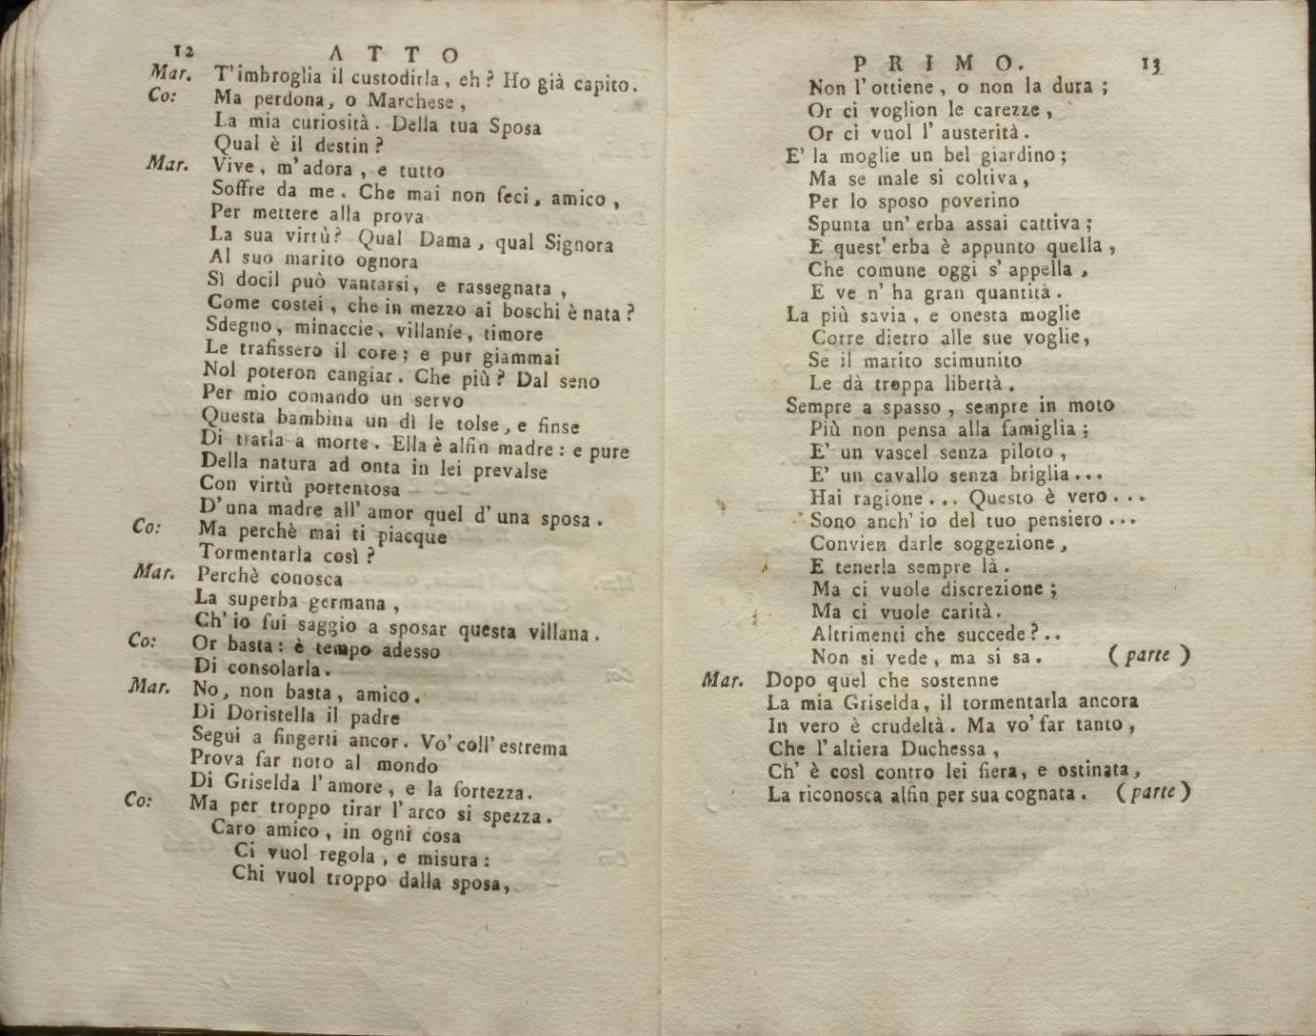 12 ATTO
Mar. T'imbroglia il custodirla, eh? Ho già capito.
Co: Ma perdona, o Marchese,
La mia curiosità. Della tua Sposa
Qual è il destin?
Mar. Vive, m'adora, e tutto
Soffre da me. Che mai non feci, amico,
Per mettere alla prova
La sua virtù? Qual Dama, qual Signora
Al suo marito ognora
Sì docil può vantarsi, e rassegnata,
Come costei, che in mezzo ai boschi è nata?
Sdegno, minaccie, villanìe, timore
Le trafissero il core; e pur giammai
Nol poteron cangiar. Che più? Dal seno
Per mio comando un servo
Questa bambina un dì le tolse, e finse
Di trarla a morte. Ella è alfin madre: e pure
Della natura ad onta in lei prevalse
Con virtù portentosa
D'una madre all'amor quel d'una sposa.
Co: Ma perchè mai ti piacque
Tormentarla così?
Mar. Perchè conosca
La superba germana,
Ch'io fui saggio a sposar questa villana.
Co: Or basta: è tempo adesso
Di consolarla.
Mar. No, non basta, amico.
Di Doristella il padre
Segui a fingerti ancor. Vo' coll'estrema
Prova far noto al mondo
Di Griselda l'amore, e la fortezza.
Co: Ma per troppo tirar l'arco si spezza.
Caro amico, in ogni cosa
Ci vuol regola, e misura:
Chi vuol troppo dalla sposa,
PRIMO. 13
Non l'ottiene, o non la dura;
Or ci voglion le carezze,
Or ci vuol l'austerità.
E' la moglie un bel giardino;
Ma se male si coltiva,
Per lo sposo poverino
Spunta un'erba assai cattiva;
E quest'erba è appunto quella,
Che comune oggi s'appella,
E ve n'ha gran quantità.
La più savia, e onesta moglie
Corre dietro alle sue voglie,
Se il marito scimunito
Le dà troppa libertà.
Sempre a spasso, sempre in moto
Più non pensa alla famiglia;
E' un vascel senza piloto,
E' un cavallo senza briglia...
Hai ragione... Questo è vero...
Sono anch'io del tuo pensiero...
Convien darle soggezione,
E tenerla sempre là.
Ma ci vuole discrezione;
Ma ci vuole carità.
Altrimenti che succede?..
Non si vede, ma si sa. (parte)
Mar. Dopo quel che sostenne
La mia Griselda, il tormentarla ancora
In vero è crudeltà. Ma vo' far tanto,
Che l'altiera Duchessa,
Ch'è così contro lei fiera, e ostinata,
La riconosca alfin per sua cognata. (parte)